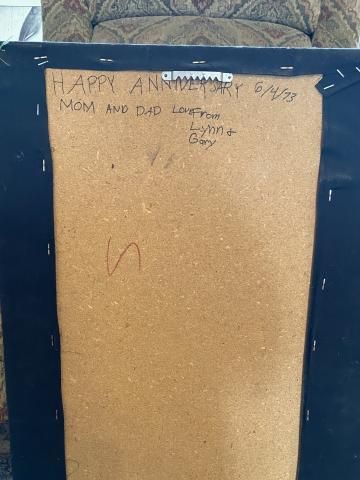 HAPPY ANNIVERSARY 6/4/73
MOM AND DAD LOVE From
Lynn &
Gary